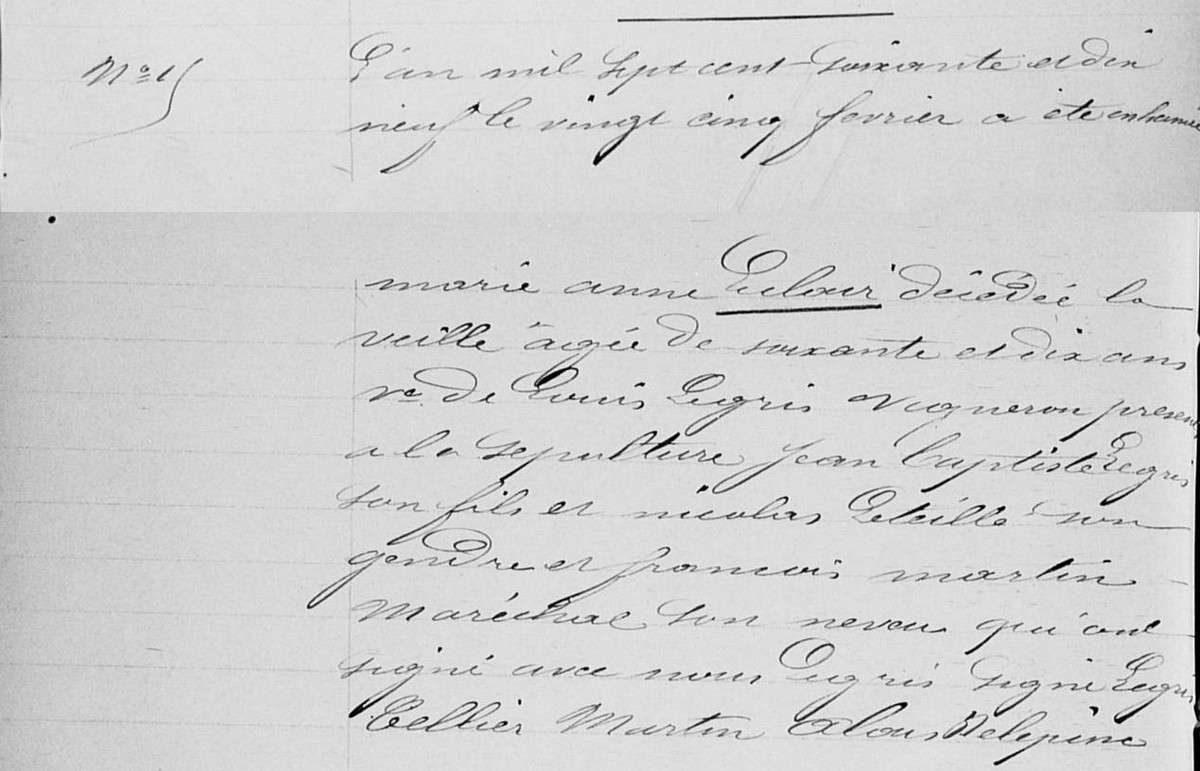 No 15
L'an mil sept cent soixante et dix
neuf le vingt cinq fevrier a ete inhumée
marie anne Leclair décédée la
veille agée de soixante et dix ans
Ve. de Louis Legris Vigneron presens
a la sepulture jean baptiste Legris
son fils et nicolas son
gendre et francois martin
Maréchal son neveu qui ont
signé avec nous Legris signé Legris
Tellier Martin Delepine